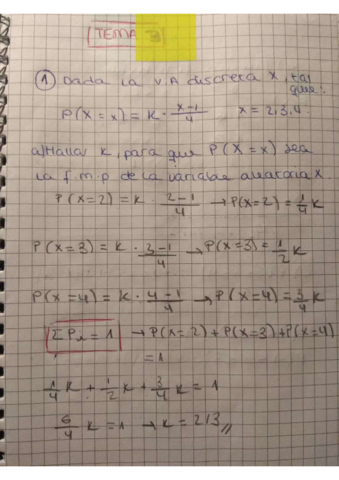 TEMA 3
① Dada la V A discreta X, tal que:
P(X = x) = K · \frac{x-1}{4}   x = 2,3,4.
a) Hallar K, para que P(X = x) sea
la f.m.p de la variable aleatoria X.
P(X=2) = K · \frac{2-1}{4} → P(X=2) = \frac{1}{4} K
P(X=3) = K · \frac{3-1}{4} → P(X=3) = \frac{1}{2} K
P(X=4) = K · \frac{4-1}{4} → P(X=4) = \frac{3}{4} K
ΣPi = 1 → P(X=2) + P(X=3) + P(X=4)
= 1
\frac{1}{4} K + \frac{1}{2} K + \frac{3}{4} K = 1
\frac{6}{4} K = 1 → K = 2/3 //